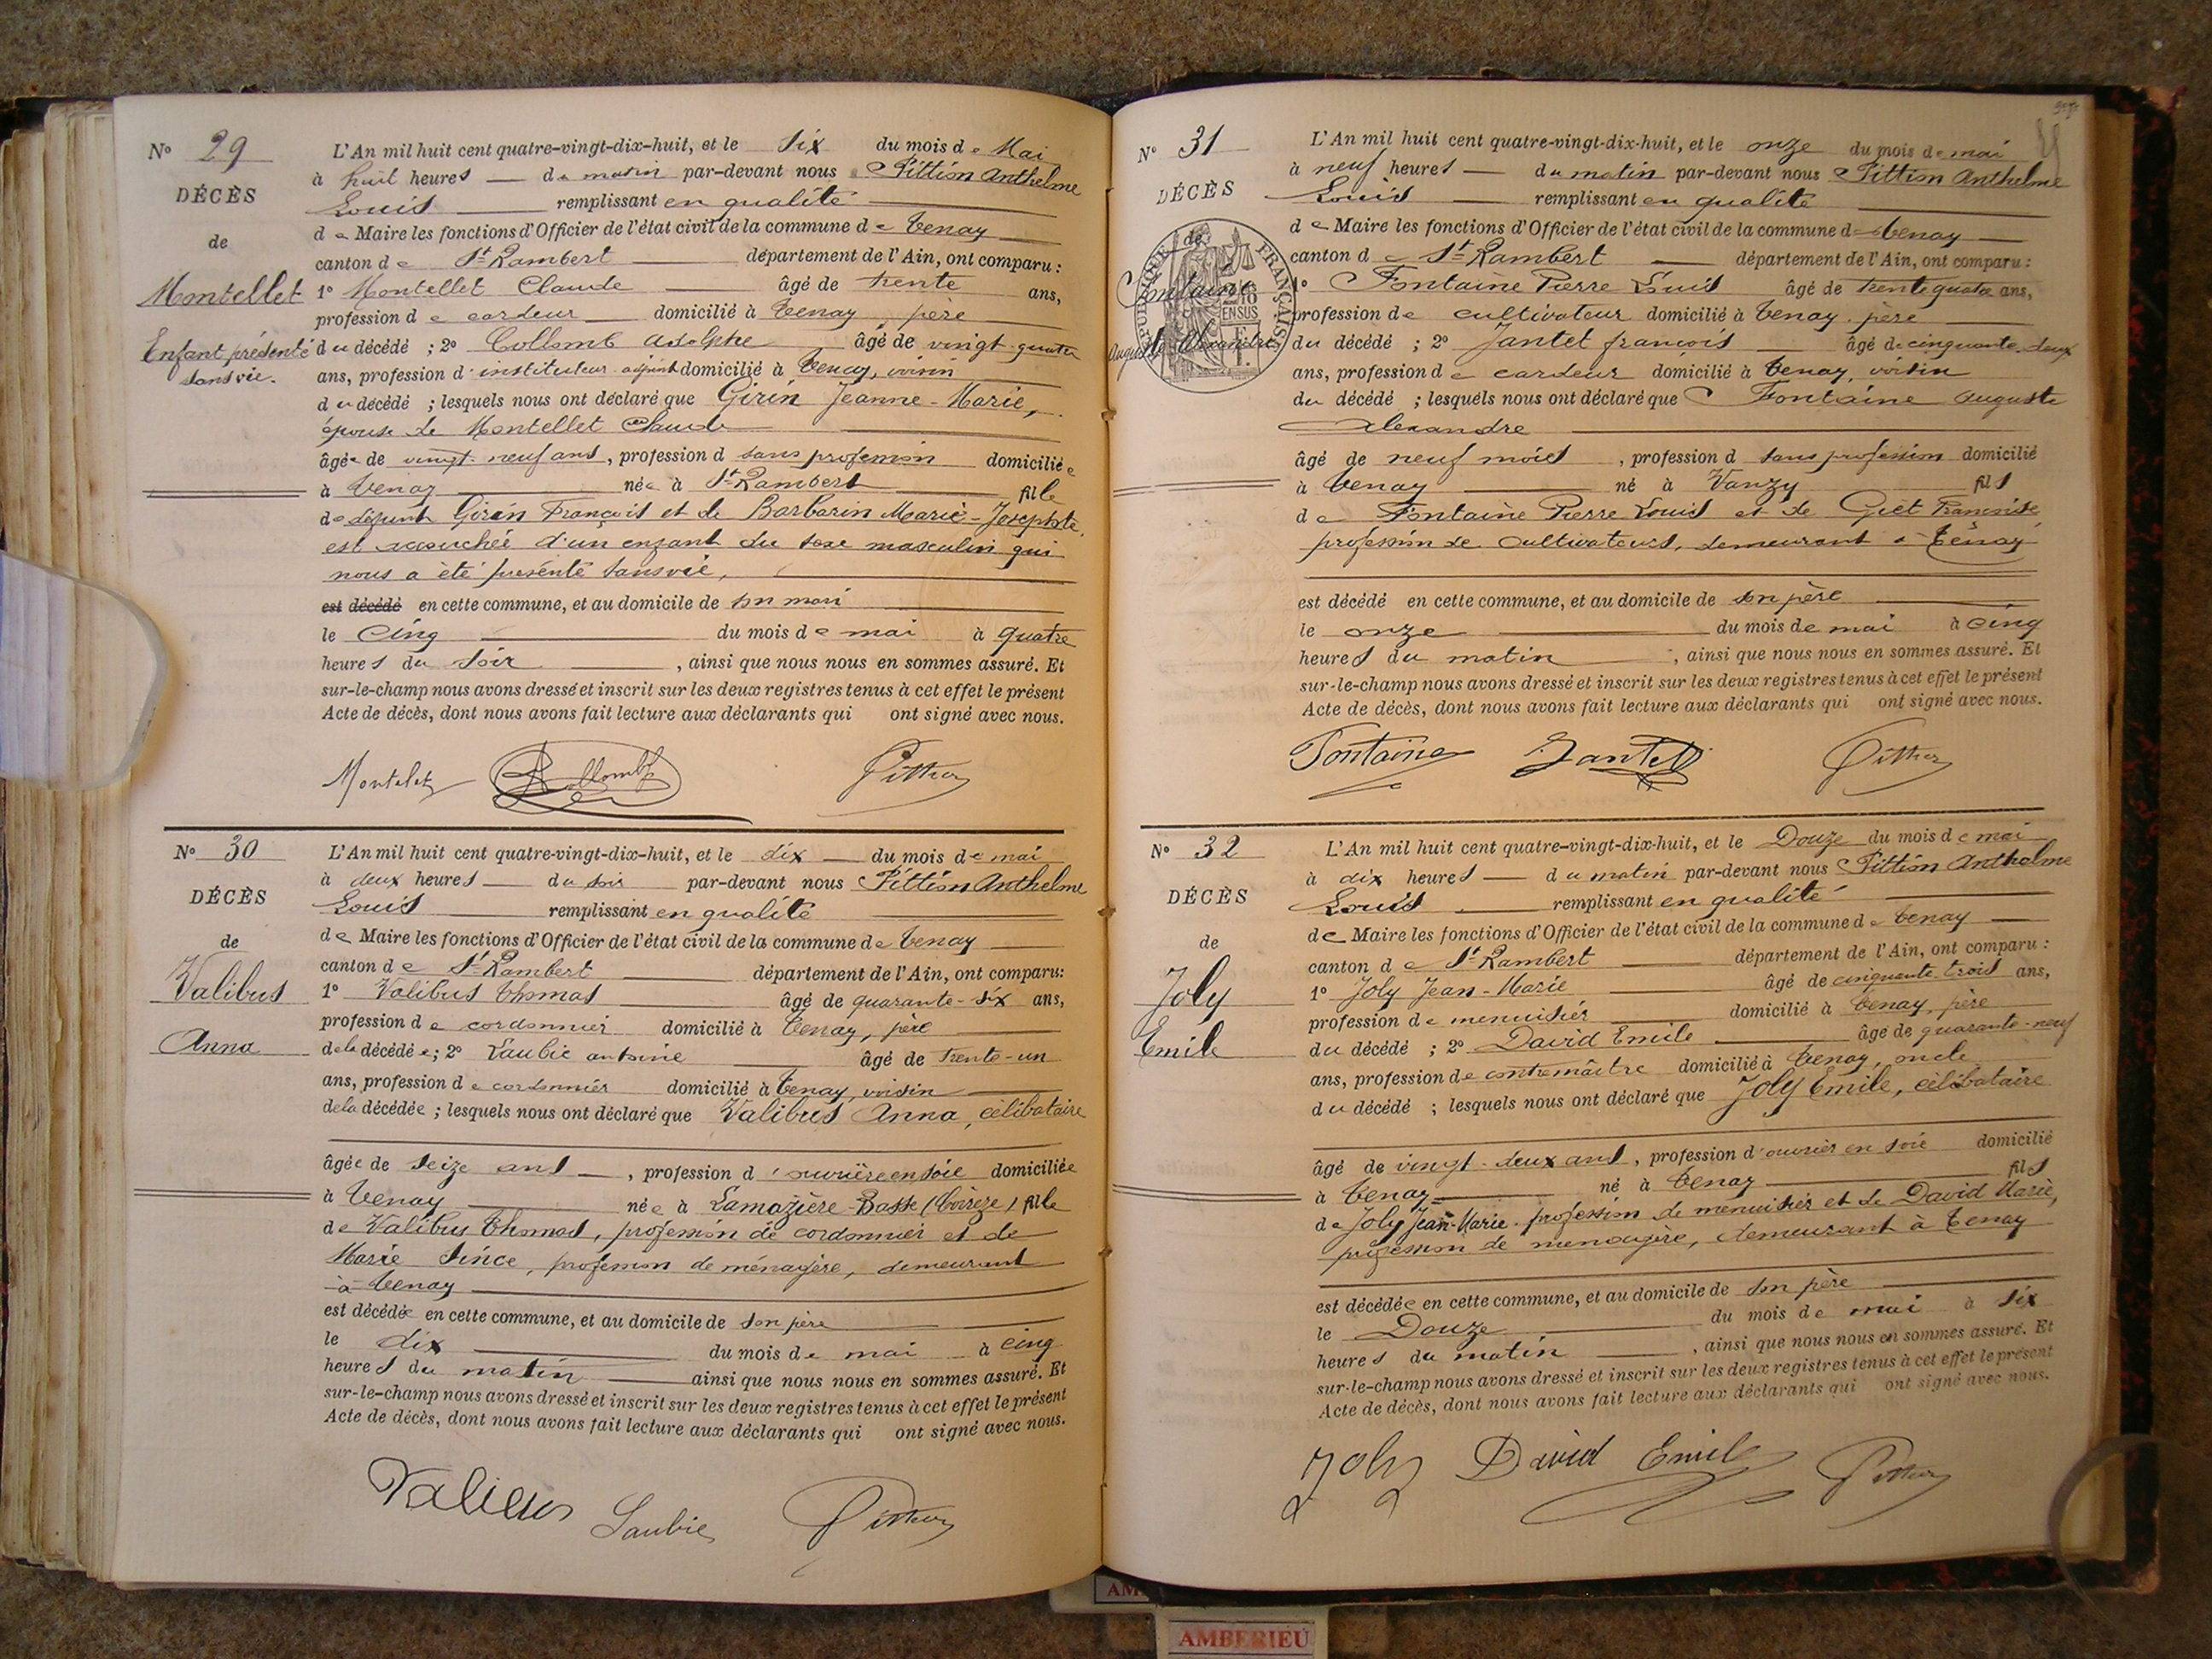 N° 29
DÉCÈS
de
Montellet
Enfant présenté
sans vie.
L'An mil huit cent quatre-vingt-dix-huit, et le six du mois de Mai
à huit heures du matin par-devant nous Pittion Anthelme
Louis remplissant en qualité
de Maire les fonctions d'Officier de l'état civil de la commune de Tenay
canton de St Rambert département de l'Ain, ont comparu :
1° Montellet Claude âgé de trente ans,
profession de cardeur domicilié à Tenay père
du décédé ; 2° Collomb Adolphe âgé de vingt-quatre
ans, profession d'instituteur adjoint domicilié à Tenay, voisin
du décédé ; lesquels nous ont déclaré que Girin Jeanne-Marie,
épouse de Montellet Claude
âgée de vingt-neuf ans, profession d sans profession domiciliée
à Tenay née à St Rambert fille
de défunt Girin François et de Barbarin Marie-Josephte,
est accouchée d'un enfant du sexe masculin qui
nous a été présenté sans vie,
est décédé en cette commune, et au domicile de son mari
le cinq du mois de mai à quatre
heures du soir, ainsi que nous nous en sommes assuré. Et
sur-le-champ nous avons dressé et inscrit sur les deux registres tenus à cet effet le présent
Acte de décès, dont nous avons fait lecture aux déclarants qui ont signé avec nous.
Montelet Collomb Pittion
N° 30
DÉCÈS
de
Valibus
Anna
L'An mil huit cent quatre-vingt-dix-huit, et le dix du mois de mai
à deux heures du soir par-devant nous Pittion Anthelme
Louis remplissant en qualité
de Maire les fonctions d'Officier de l'état civil de la commune de Tenay
canton de St Rambert département de l'Ain, ont comparu:
1° Valibus Thomas âgé de quarante-six ans,
profession de cordonnier domicilié à Tenay, père
de la décédée; 2° Laubie antoine âgé de trente-un
ans, profession de cordonnier domicilié à Tenay, voisin
de la décédée ; lesquels nous ont déclaré que Valibus Anna, célibataire
âgée de seize ans, profession d'ouvrière en soie domiciliée
à Tenay née à Lamazière-Basse (Corrèze) fille
de Valibus Thomas, profession de cordonnier et de
Marie Since, profession de ménagère, demeurant
à Tenay
est décédée en cette commune, et au domicile de son père
le dix du mois de mai à cinq
heures du matin ainsi que nous nous en sommes assuré. Et
sur-le-champ nous avons dressé et inscrit sur les deux registres tenus à cet effet le présent
Acte de décès, dont nous avons fait lecture aux déclarants qui ont signé avec nous.
Valibus Laubie Pittion
N° 31
DÉCÈS
de
Fontaine
Auguste Alexandre
L'An mil huit cent quatre-vingt-dix-huit, et le onze du mois de mai
à neuf heures du matin par-devant nous Pittion Anthelme
Louis remplissant en qualité
de Maire les fonctions d'Officier de l'état civil de la commune de Tenay
canton de St Rambert département de l'Ain, ont comparu :
1° Fontaine Pierre Louis âgé de trente quatre ans,
profession de cultivateur domicilié à Tenay père
du décédé ; 2° Jantet françois âgé de cinquante-deux
ans, profession de cardeur domicilié à Tenay, voisin
du décédé ; lesquels nous ont déclaré que Fontaine auguste
alexandre
âgé de neuf mois, profession d sans profession domicilié
à Tenay né à Vanzy fils
de Fontaine Pierre Louis et de Giet Francoise
profession de cultivateurs, demeurant à Tenay
est décédé en cette commune, et au domicile de son père
le onze du mois de mai à cinq
heures du matin, ainsi que nous nous en sommes assuré. Et
sur-le-champ nous avons dressé et inscrit sur les deux registres tenus à cet effet le présent
Acte de décès, dont nous avons fait lecture aux déclarants qui ont signé avec nous.
Fontaine Jantet Pittion
N° 32
DÉCÈS
de
Joly
Emile
L'An mil huit cent quatre-vingt-dix-huit, et le Douze du mois de mai
à dix heures du matin par-devant nous Pittion Anthelme
Louis remplissant en qualité
de Maire les fonctions d'Officier de l'état civil de la commune de Tenay
canton de St Rambert département de l'Ain, ont comparu :
1° Joly Jean-Marie âgé de cinquante trois ans,
profession de menuisier domicilié à Tenay, père
du décédé ; 2° David Emile âgé de quarante-neuf
ans, profession de contremaître domicilié à Tenay, oncle
du décédé ; lesquels nous ont déclaré que Joly Emile, célibataire
âgé de vingt-deux ans, profession d'ouvrier en soie domicilié
à Tenay né à Tenay fils
de Joly Jean-Marie profession de menuisier et de David Marie,
profession de menagère, demeurant à Tenay
est décédée en cette commune, et au domicile de son père
le Douze du mois de mai à six
heures du matin, ainsi que nous nous en sommes assuré. Et
sur-le-champ nous avons dressé et inscrit sur les deux registres tenus à cet effet le présent
Acte de décès, dont nous avons fait lecture aux déclarants qui ont signé avec nous.
Joly David Emile Pittion
AMBERIEU